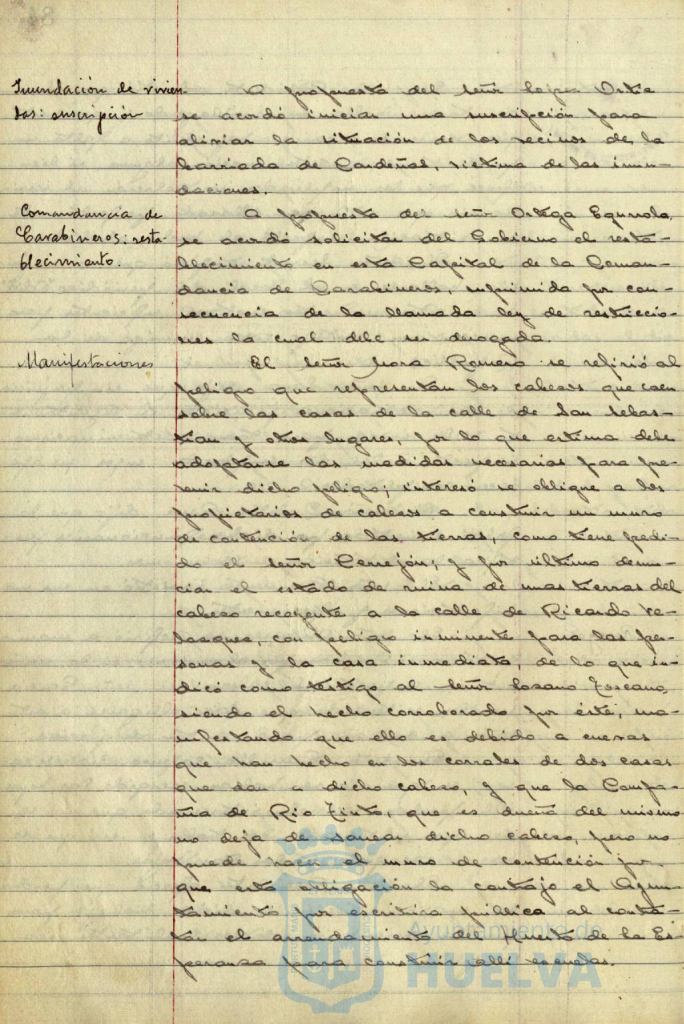 Inundación de vivien-
das: suscripción
A propuesta del señor López Ortiz
se acordó iniciar una suscripción para
aliviar la situación de los vecinos de la
barriada de Cardeñas, víctima de las inun-
daciones.
Comandancia de
Carabineros: resta-
blecimiento.
A propuesta del señor Ortega Egurrola,
se acordó solicitar del Gobierno el resta-
blecimiento en esta Capital de la Coman-
dancia de Carabineros, suprimida por con-
secuencia de la llamada ley de restriccio-
nes la cual debe ser derogada.
Manifestaciones
El señor Mora Romero se refirió al
peligro que representan los cabezos que caen
sobre las casas de la calle de San Sebas-
tián y otros lugares, por lo que estima debe
adoptarse las medidas necesarias para pre-
venir dicho peligro; interesó se obligue a los
propietarios de cabezos a construir un muro
de contención de las tierras, como tiene pedi-
do el señor Cerrejón; y por último denun-
cian el estado de ruina de unas tierras del
cabezo recayente a la calle de Ricardo Ve-
lazquez, con peligro inminente para las per-
sonas y la casa inmediata, de lo que in-
dicó como testigo al señor Lozano Toscano,
siendo el hecho corroborado por éste, ma-
nifestando que ello es debido a cuevas
que han hecho en los corrales de dos casas
que dan a dicho cabezo, y que la Compa-
ñía de Rio Tinto, que es dueña del mismo
no deja de sanear dicho cabezo, pero no
puede hacer el muro de contención por-
que esta obligación la contrajo el Ayun-
tamiento por escritura pública al contra-
tar el arrendamiento del Huerto de la Es-
peranza para construir allí escuelas.
Ayuntamiento de
HUELVA